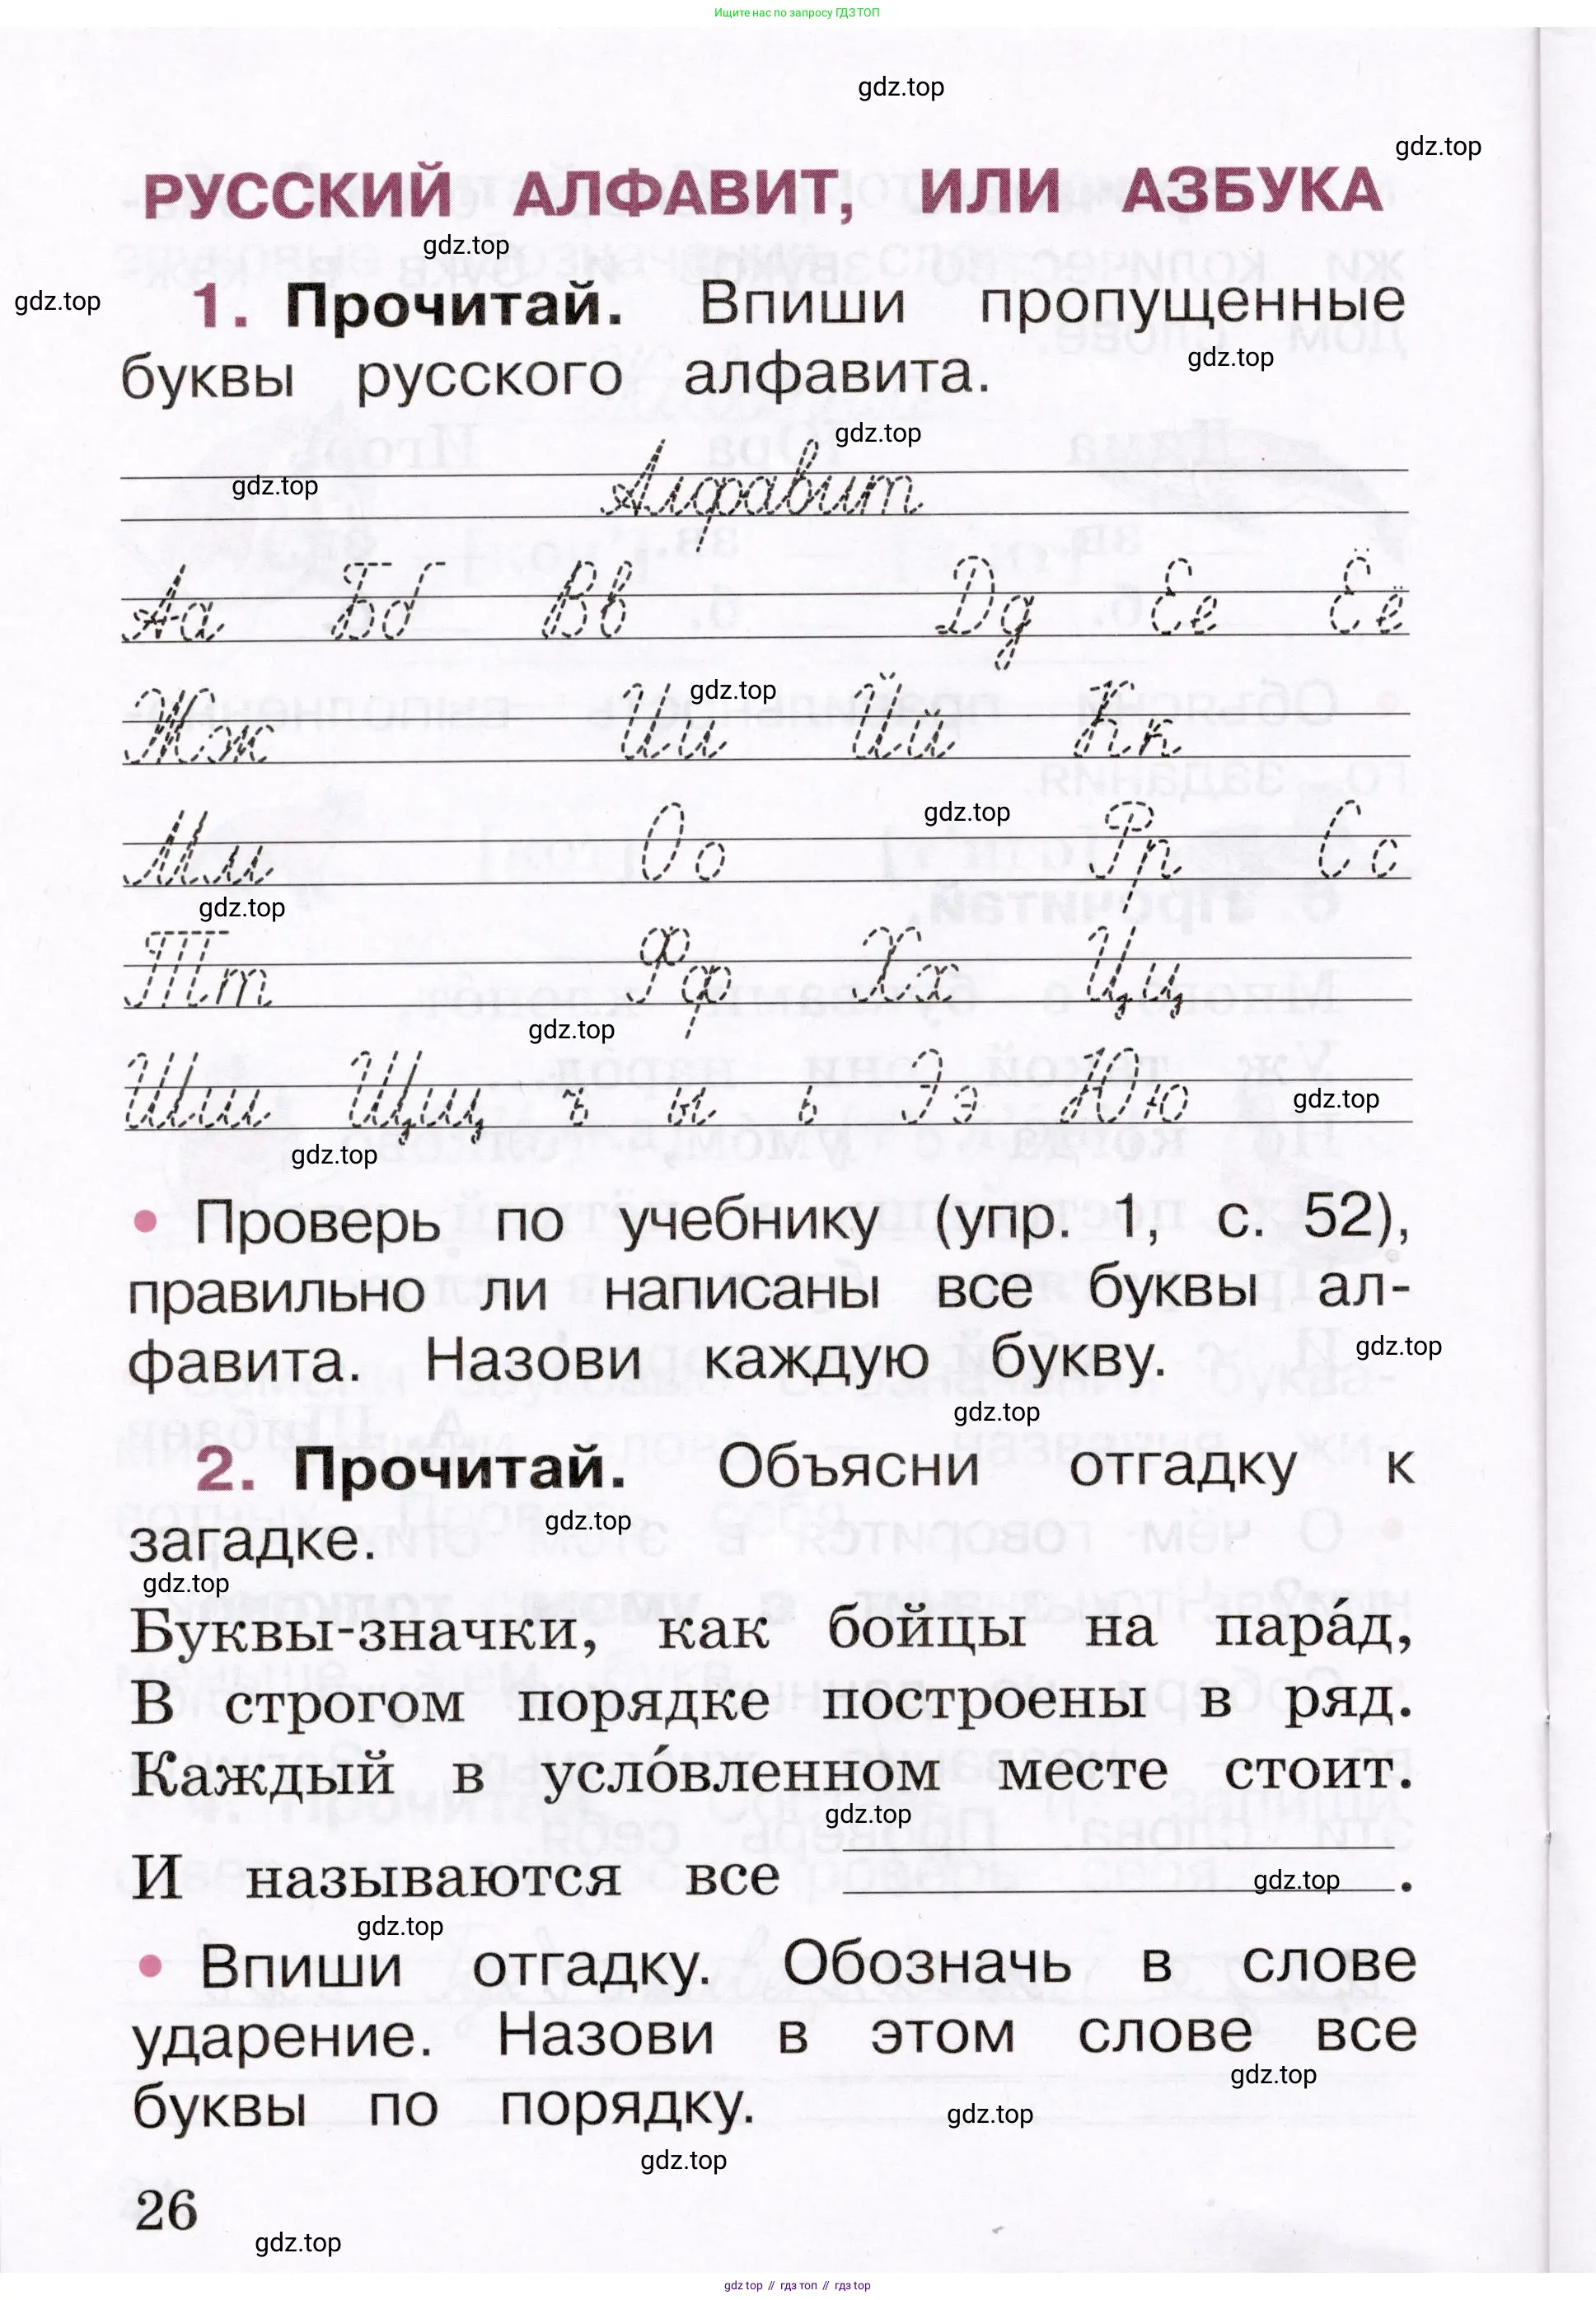 Ищите нас по запросу ГДЗ ТОП
gdz.top
gdz.top
РУССКИЙ АЛФАВИТ, ИЛИ АЗБУКА
gdz.top
gdz.top
1. Прочитай. Впиши пропущенные
буквы русского алфавита.
gdz.top
gdz.top
gdz.top
Алфавит
Аа Бб Вв Дд Ее Ёё
gdz.top
Жж Ии Йй Кк
gdz.top
Мм Оо Пп Сс
gdz.top
Тт Фф Хх Цц
gdz.top
Шш Щщ ъ ы ь Ээ Юю
gdz.top
gdz.top
• Проверь по учебнику (упр. 1, с. 52),
правильно ли написаны все буквы ал-
фавита. Назови каждую букву.
gdz.top
gdz.top
2. Прочитай. Объясни отгадку к
загадке.
gdz.top
gdz.top
Буквы-значки, как бойцы на пара́д,
В строгом порядке построены в ряд.
Каждый в усло́вленном месте стоит.
gdz.top
И называются все .
gdz.top
gdz.top
• Впиши отгадку. Обозначь в слове
ударение. Назови в этом слове все
буквы по порядку.
gdz.top
gdz.top
gdz.top
26
gdz.top
gdz top // гдз топ // гдз top